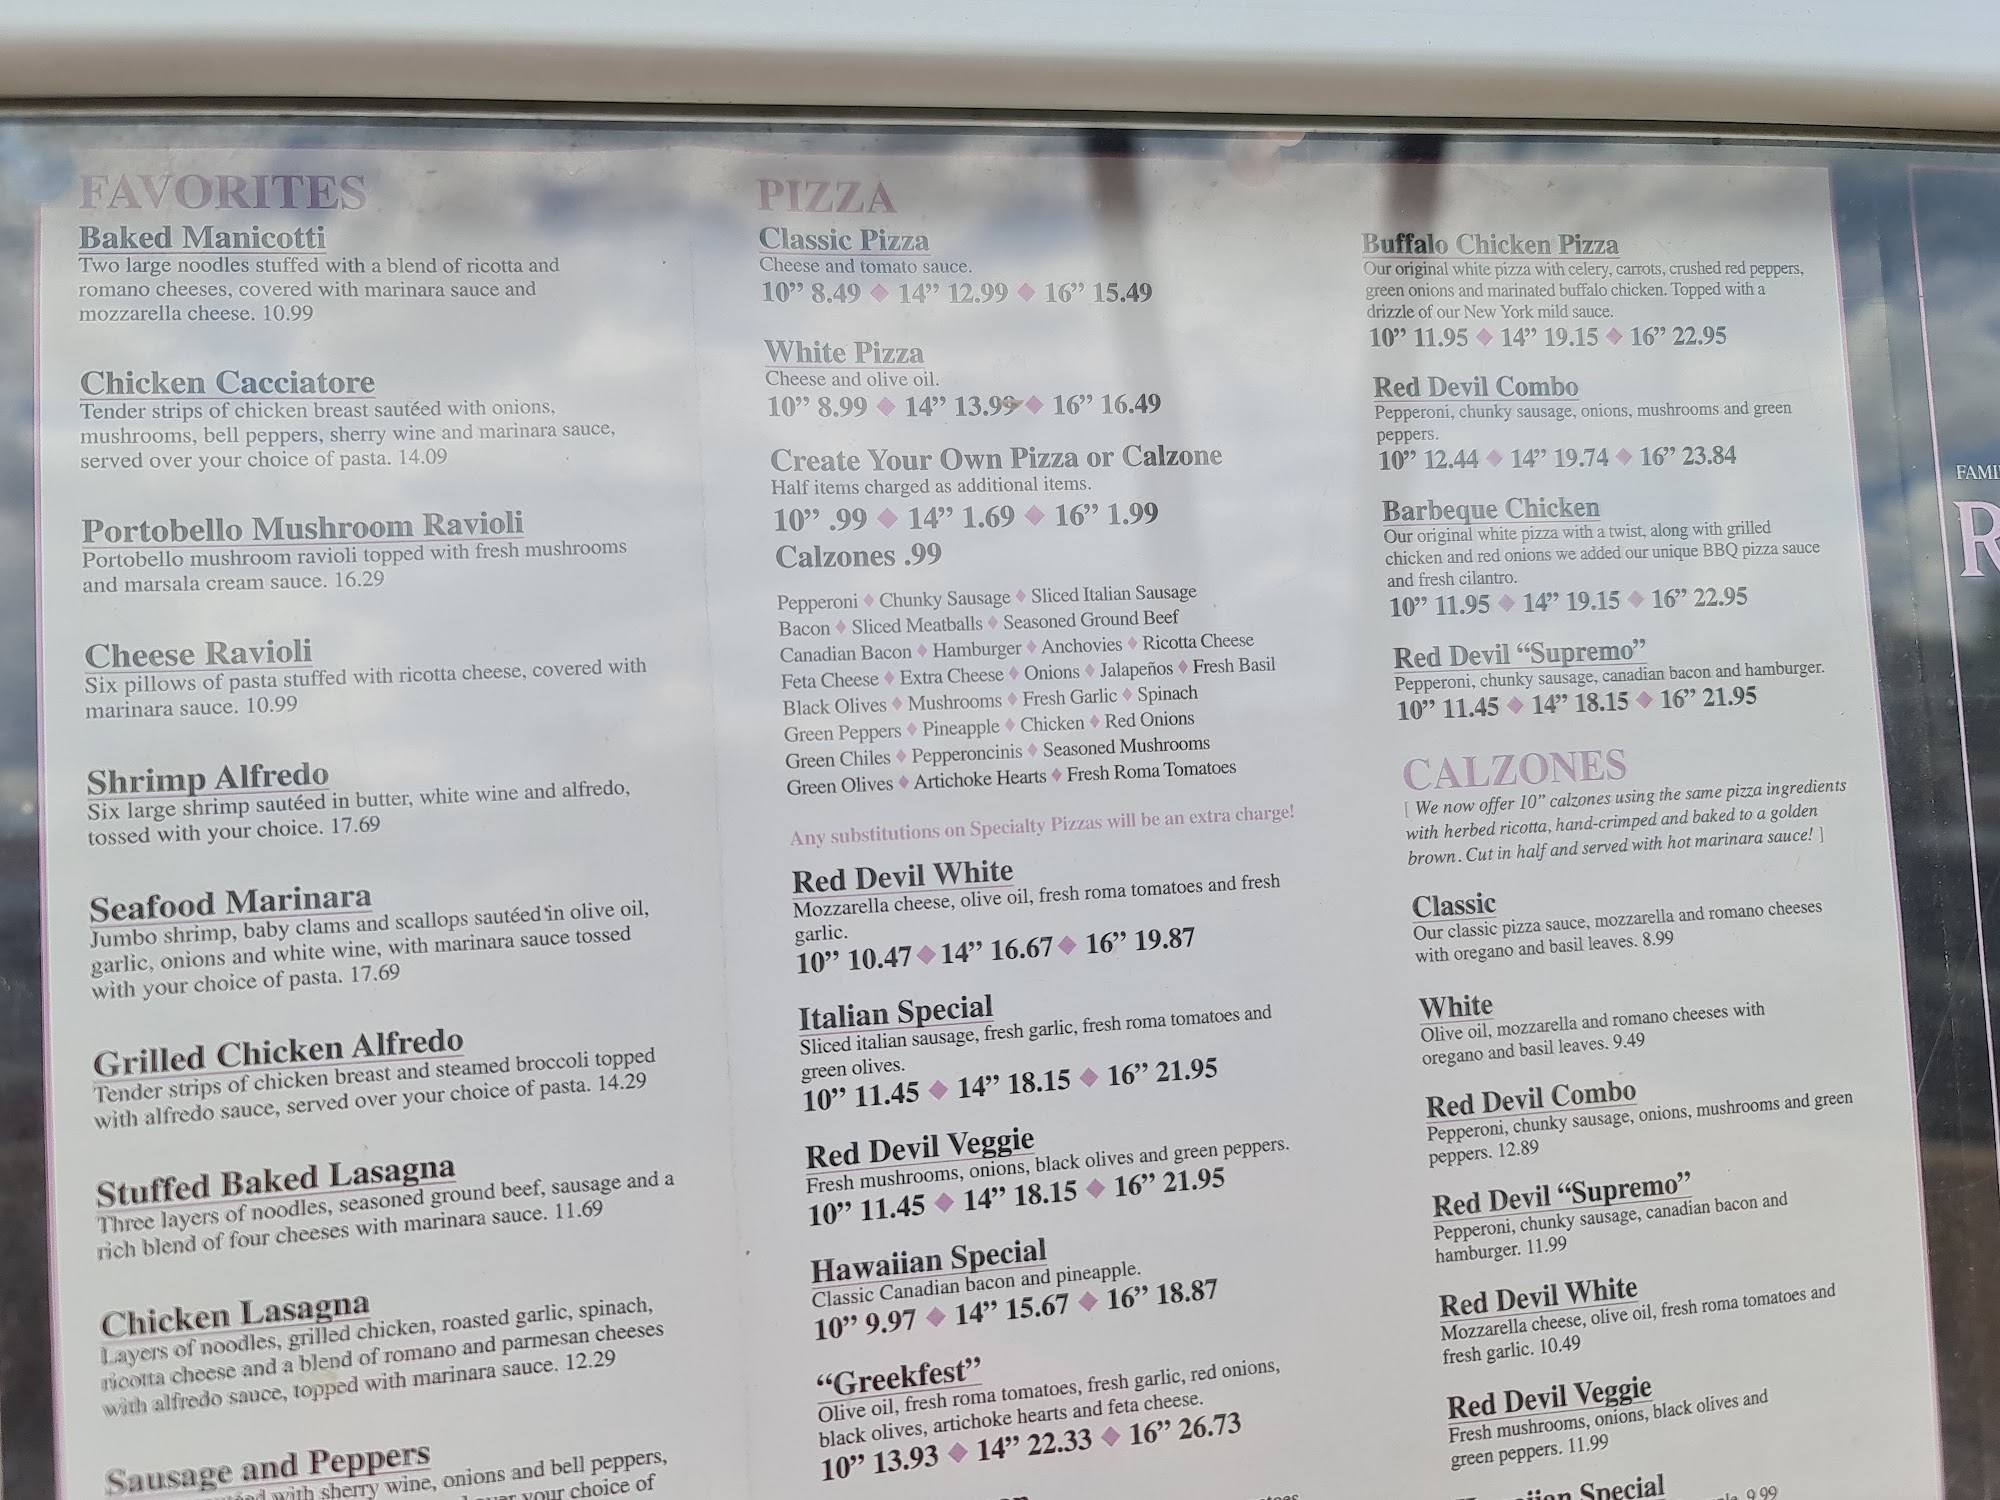 FAVORITES
Baked Manicotti
Two large noodles stuffed with a blend of ricotta and
romano cheeses, covered with marinara sauce and
mozzarella cheese. 10.99
Chicken Cacciatore
Tender strips of chicken breast sautéed with onions,
mushrooms, bell peppers, sherry wine and marinara sauce,
served over your choice of pasta. 14.09
Portobello Mushroom Ravioli
Portobello mushroom ravioli topped with fresh mushrooms
and marsala cream sauce. 16.29
Cheese Ravioli
Six pillows of pasta stuffed with ricotta cheese, covered with
marinara sauce. 10.99
Shrimp Alfredo
Six large shrimp sautéed in butter, white wine and alfredo,
tossed with your choice. 17.69
Seafood Marinara
Jumbo shrimp, baby clams and scallops sautéed in olive oil,
garlic, onions and white wine, with marinara sauce tossed
with your choice of pasta. 17.69
Grilled Chicken Alfredo
Tender strips of chicken breast and steamed broccoli topped
with alfredo sauce, served over your choice of pasta. 14.29
Stuffed Baked Lasagna
Three layers of noodles, seasoned ground beef, sausage and a
rich blend of four cheeses with marinara sauce. 11.69
Chicken Lasagna
Layers of noodles, grilled chicken, roasted garlic, spinach,
ricotta cheese and a blend of romano and parmesan cheeses
with alfredo sauce, topped with marinara sauce. 12.29
Sausage and Peppers
with sherry wine, onions and bell peppers,
your choice of
PIZZA
Classic Pizza
Cheese and tomato sauce.
10” 8.49 ◆ 14” 12.99 ◆ 16” 15.49
White Pizza
Cheese and olive oil.
10” 8.99 ◆ 14” 13.99 ◆ 16” 16.49
Create Your Own Pizza or Calzone
Half items charged as additional items.
10” .99 ◆ 14” 1.69 ◆ 16” 1.99
Calzones .99
Pepperoni ◆ Chunky Sausage ◆ Sliced Italian Sausage
Bacon ◆ Sliced Meatballs ◆ Seasoned Ground Beef
Canadian Bacon ◆ Hamburger ◆ Anchovies ◆ Ricotta Cheese
Feta Cheese ◆ Extra Cheese ◆ Onions ◆ Jalapeños ◆ Fresh Basil
Black Olives ◆ Mushrooms ◆ Fresh Garlic ◆ Spinach
Green Peppers ◆ Pineapple ◆ Chicken ◆ Red Onions
Green Chiles ◆ Pepperoncinis ◆ Seasoned Mushrooms
Green Olives ◆ Artichoke Hearts ◆ Fresh Roma Tomatoes
Any substitutions on Specialty Pizzas will be an extra charge!
Red Devil White
Mozzarella cheese, olive oil, fresh roma tomatoes and fresh
garlic.
10” 10.47 ◆ 14” 16.67 ◆ 16” 19.87
Italian Special
Sliced italian sausage, fresh garlic, fresh roma tomatoes and
green olives.
10” 11.45 ◆ 14” 18.15 ◆ 16” 21.95
Red Devil Veggie
Fresh mushrooms, onions, black olives and green peppers.
10” 11.45 ◆ 14” 18.15 ◆ 16” 21.95
Hawaiian Special
Classic Canadian bacon and pineapple.
10” 9.97 ◆ 14” 15.67 ◆ 16” 18.87
“Greekfest”
Olive oil, fresh roma tomatoes, fresh garlic, red onions,
black olives, artichoke hearts and feta cheese.
10” 13.93 ◆ 14” 22.33 ◆ 16” 26.73
Buffalo Chicken Pizza
Our original white pizza with celery, carrots, crushed red peppers,
green onions and marinated buffalo chicken. Topped with a
drizzle of our New York mild sauce.
10” 11.95 ◆ 14” 19.15 ◆ 16” 22.95
Red Devil Combo
Pepperoni, chunky sausage, onions, mushrooms and green
peppers.
10” 12.44 ◆ 14” 19.74 ◆ 16” 23.84
Barbeque Chicken
Our original white pizza with a twist, along with grilled
chicken and red onions we added our unique BBQ pizza sauce
and fresh cilantro.
10” 11.95 ◆ 14” 19.15 ◆ 16” 22.95
Red Devil “Supremo”
Pepperoni, chunky sausage, canadian bacon and hamburger.
10” 11.45 ◆ 14” 18.15 ◆ 16” 21.95
CALZONES
[ We now offer 10” calzones using the same pizza ingredients
with herbed ricotta, hand-crimped and baked to a golden
brown. Cut in half and served with hot marinara sauce! ]
Classic
Our classic pizza sauce, mozzarella and romano cheeses
with oregano and basil leaves. 8.99
White
Olive oil, mozzarella and romano cheeses with
oregano and basil leaves. 9.49
Red Devil Combo
Pepperoni, chunky sausage, onions, mushrooms and green
peppers. 12.89
Red Devil “Supremo”
Pepperoni, chunky sausage, canadian bacon and
hamburger. 11.99
Red Devil White
Mozzarella cheese, olive oil, fresh roma tomatoes and
fresh garlic. 10.49
Red Devil Veggie
Fresh mushrooms, onions, black olives and
green peppers. 11.99
Special
9.99
FAMI
R